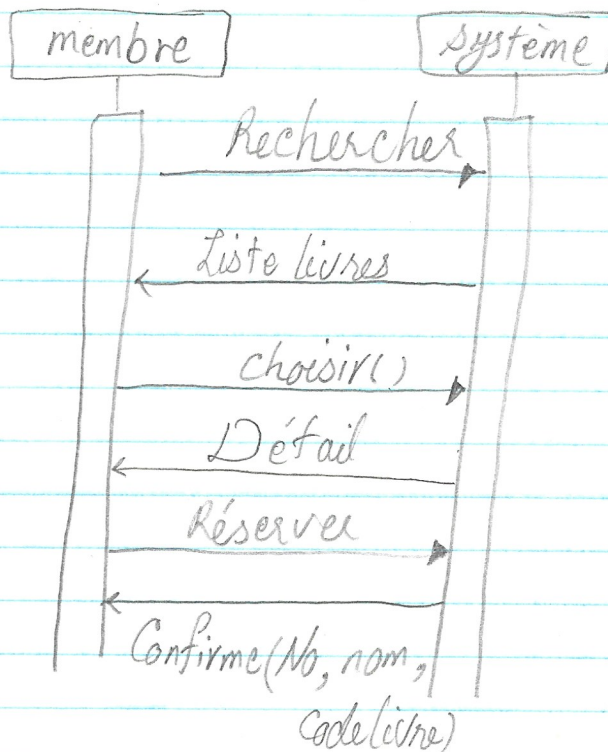 membre
système
Rechercher
Liste livres
choisir()
Détail
Réserver
Confirme(No, nom,
code livre)